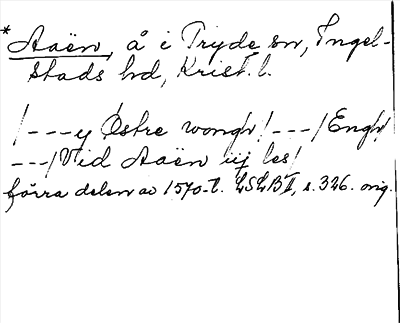 *Aaën, å i Tryde sn, Ingel-
stads hd, Krist. l.
/---y Østre wongh/---/Engh/
---/Vid Aaën iij les/
förra delen av 1570-t. LSLB II, s. 326. orig.